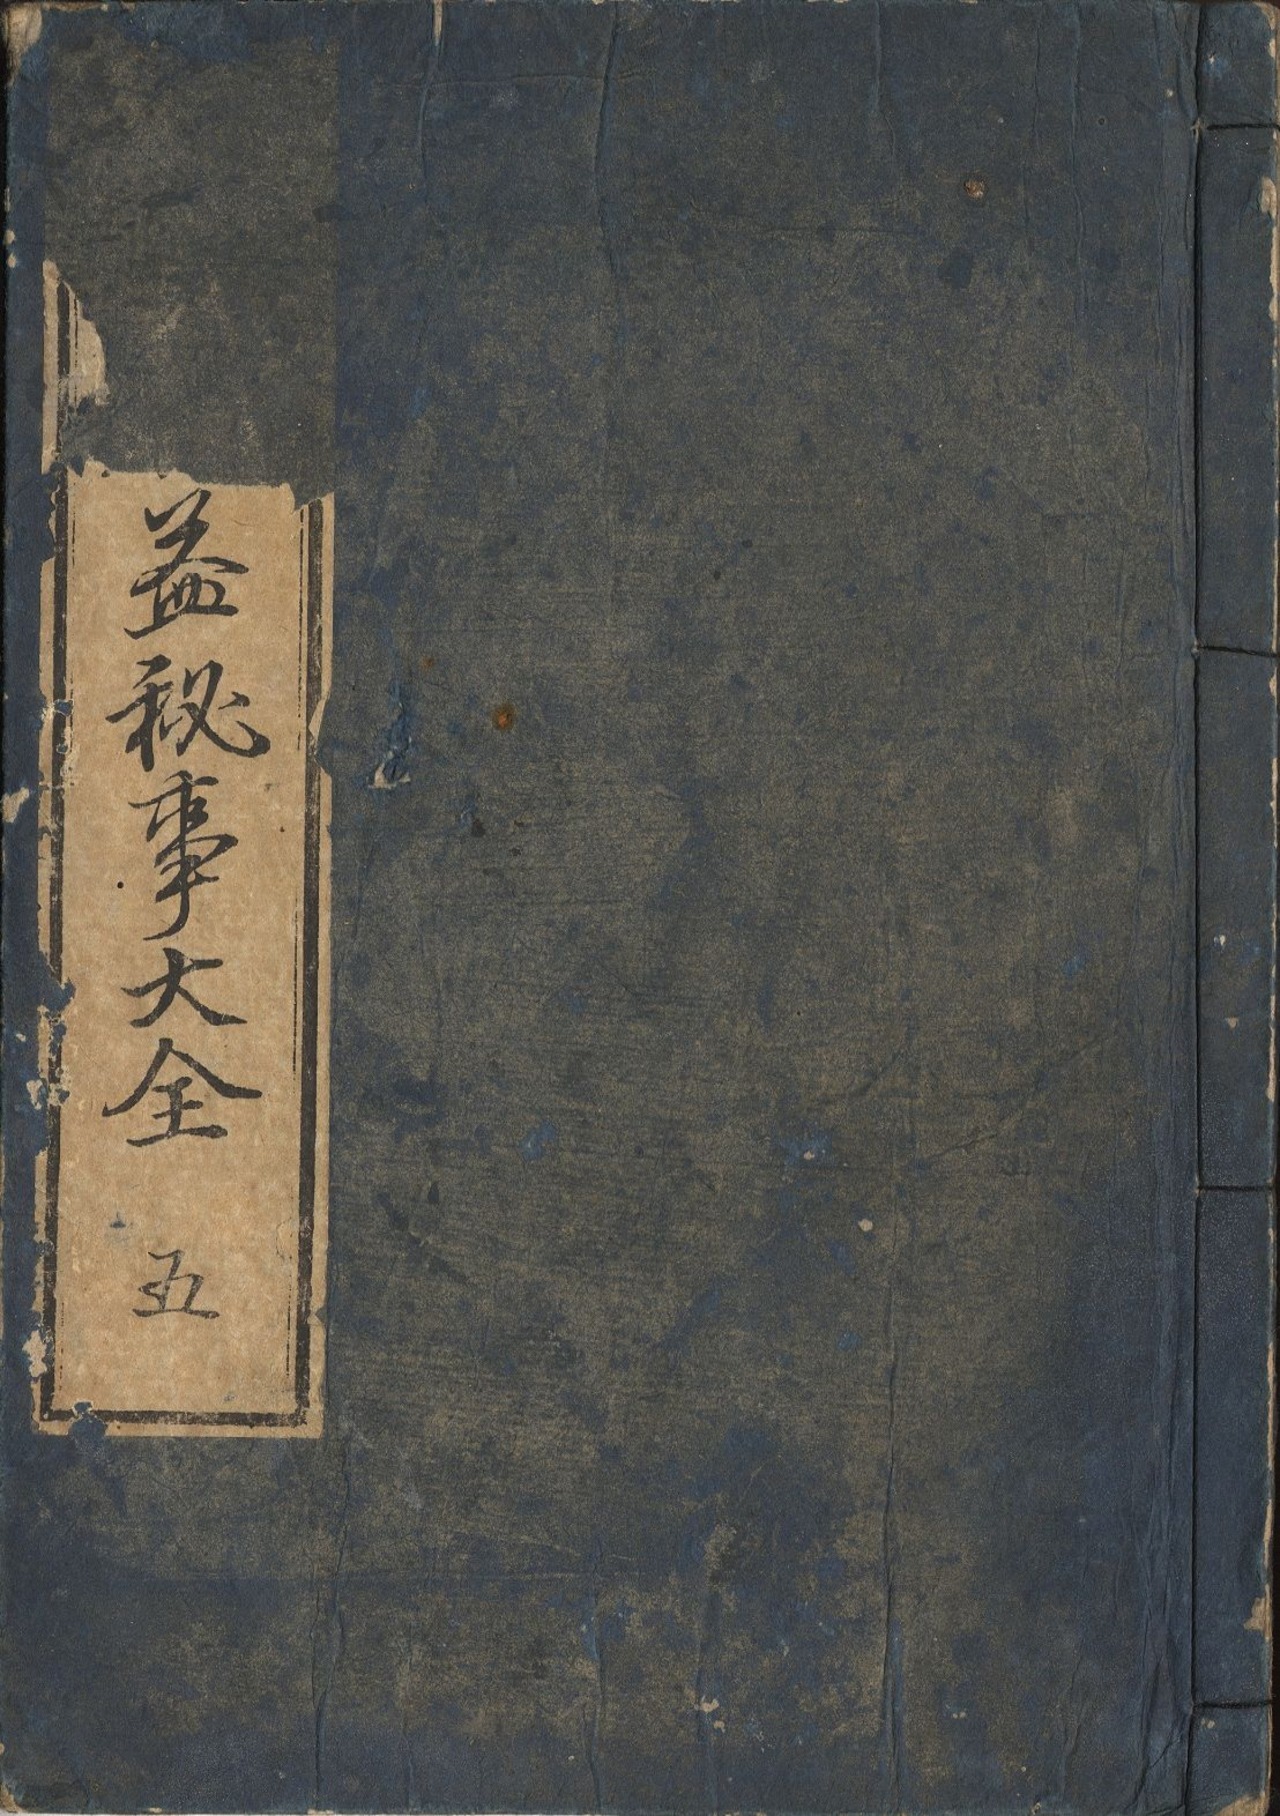 益秘事大全 五